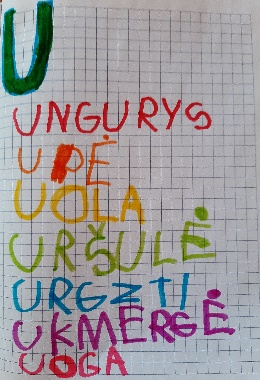 U
UNGURYS
UPĖ
UOLA
URŠULĖ
URGZTI
UKMERGĖ
UOGA